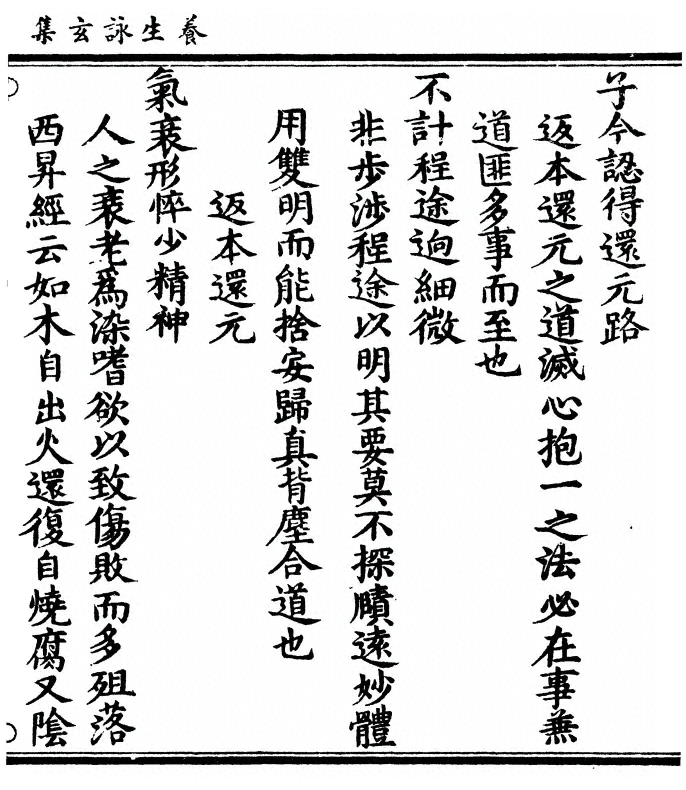 養生詠玄集
予今認得還元路
返本還元之道滅心抱一之法必在事兼
道匪多事而至也
不計程途逈細微
非步涉程途以明其要莫不探賾遠妙體
用雙明而能捨妄歸真背塵合道也
返本還元
氣衰形悴少精神
人之衰老爲染嗜欲以致傷敗而多殂落
西昇經云如木自出火還復自燒腐又陰